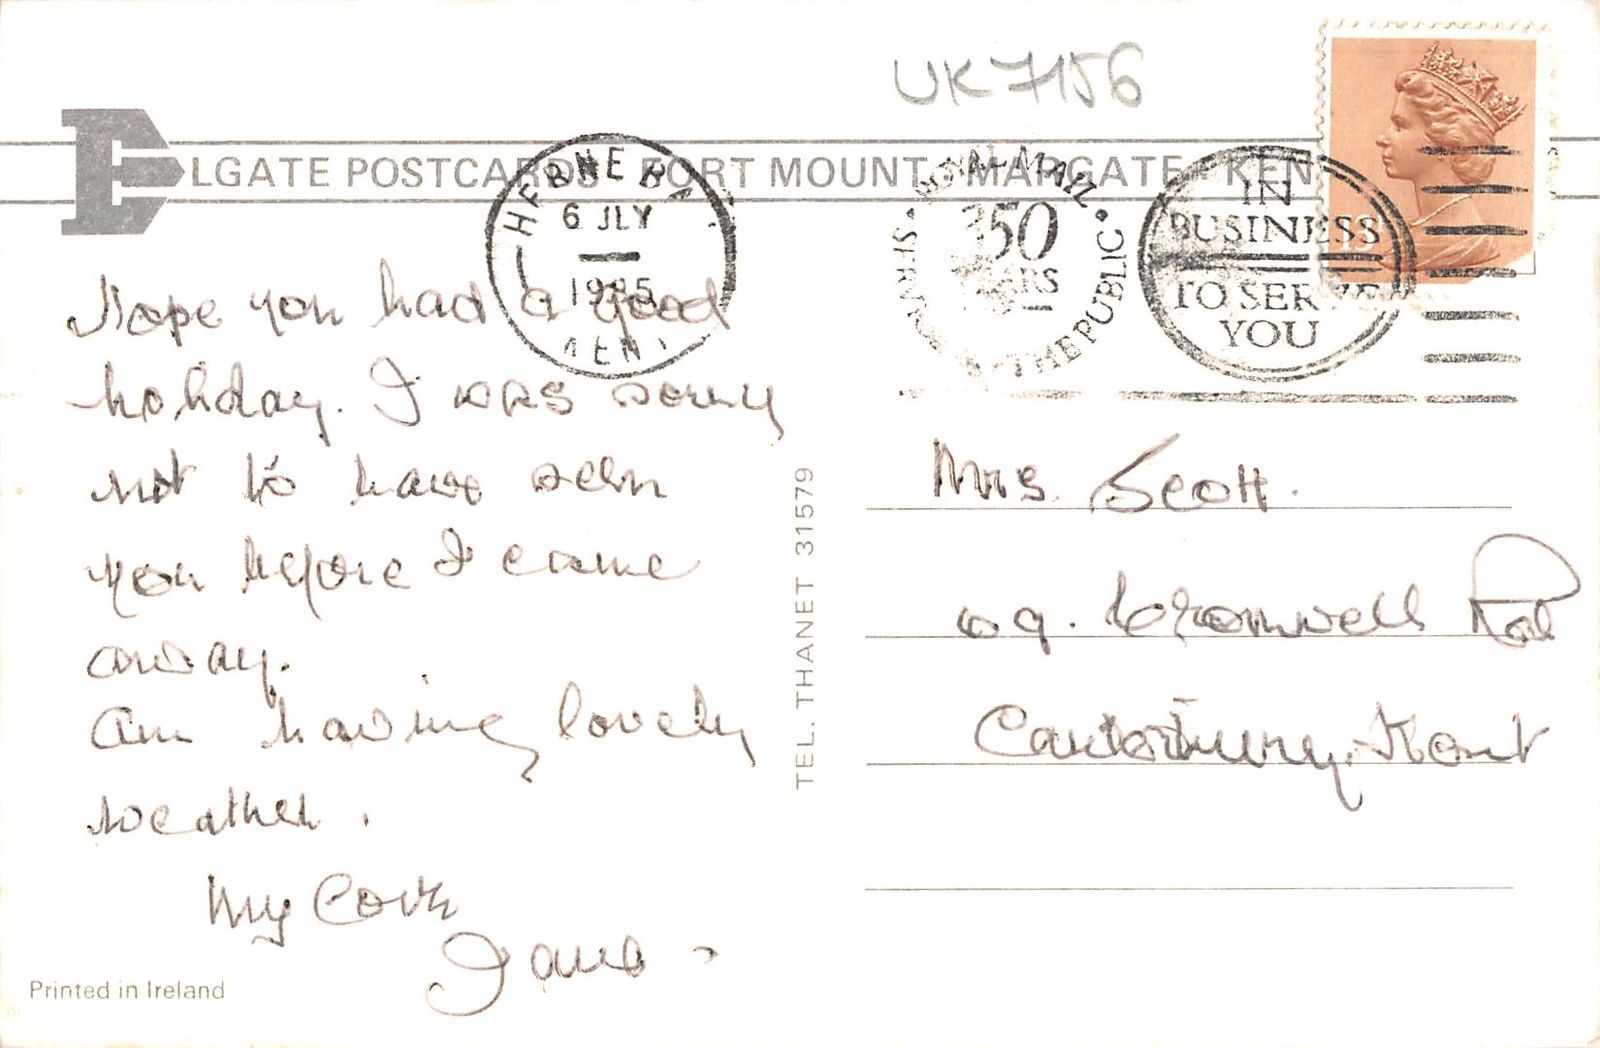 UK7156
ELGATE POSTCARDS PORT MOUNT MARGATE KEN
HERNE BA
6 JLY
1985
KENT
ROYAL MAIL
350
YEARS
SERVING
THE PUBLIC
IN
BUSINESS
TO SERVE
YOU
Hope you had a good
holiday. I was sorry
not to have seen
you before I came
away.
Am having lovely
weather.
My Love
Jane
Printed in Ireland
TEL. THANET 31579
Mrs. Scott.
Cromwell Rd
Canterbury. Kent